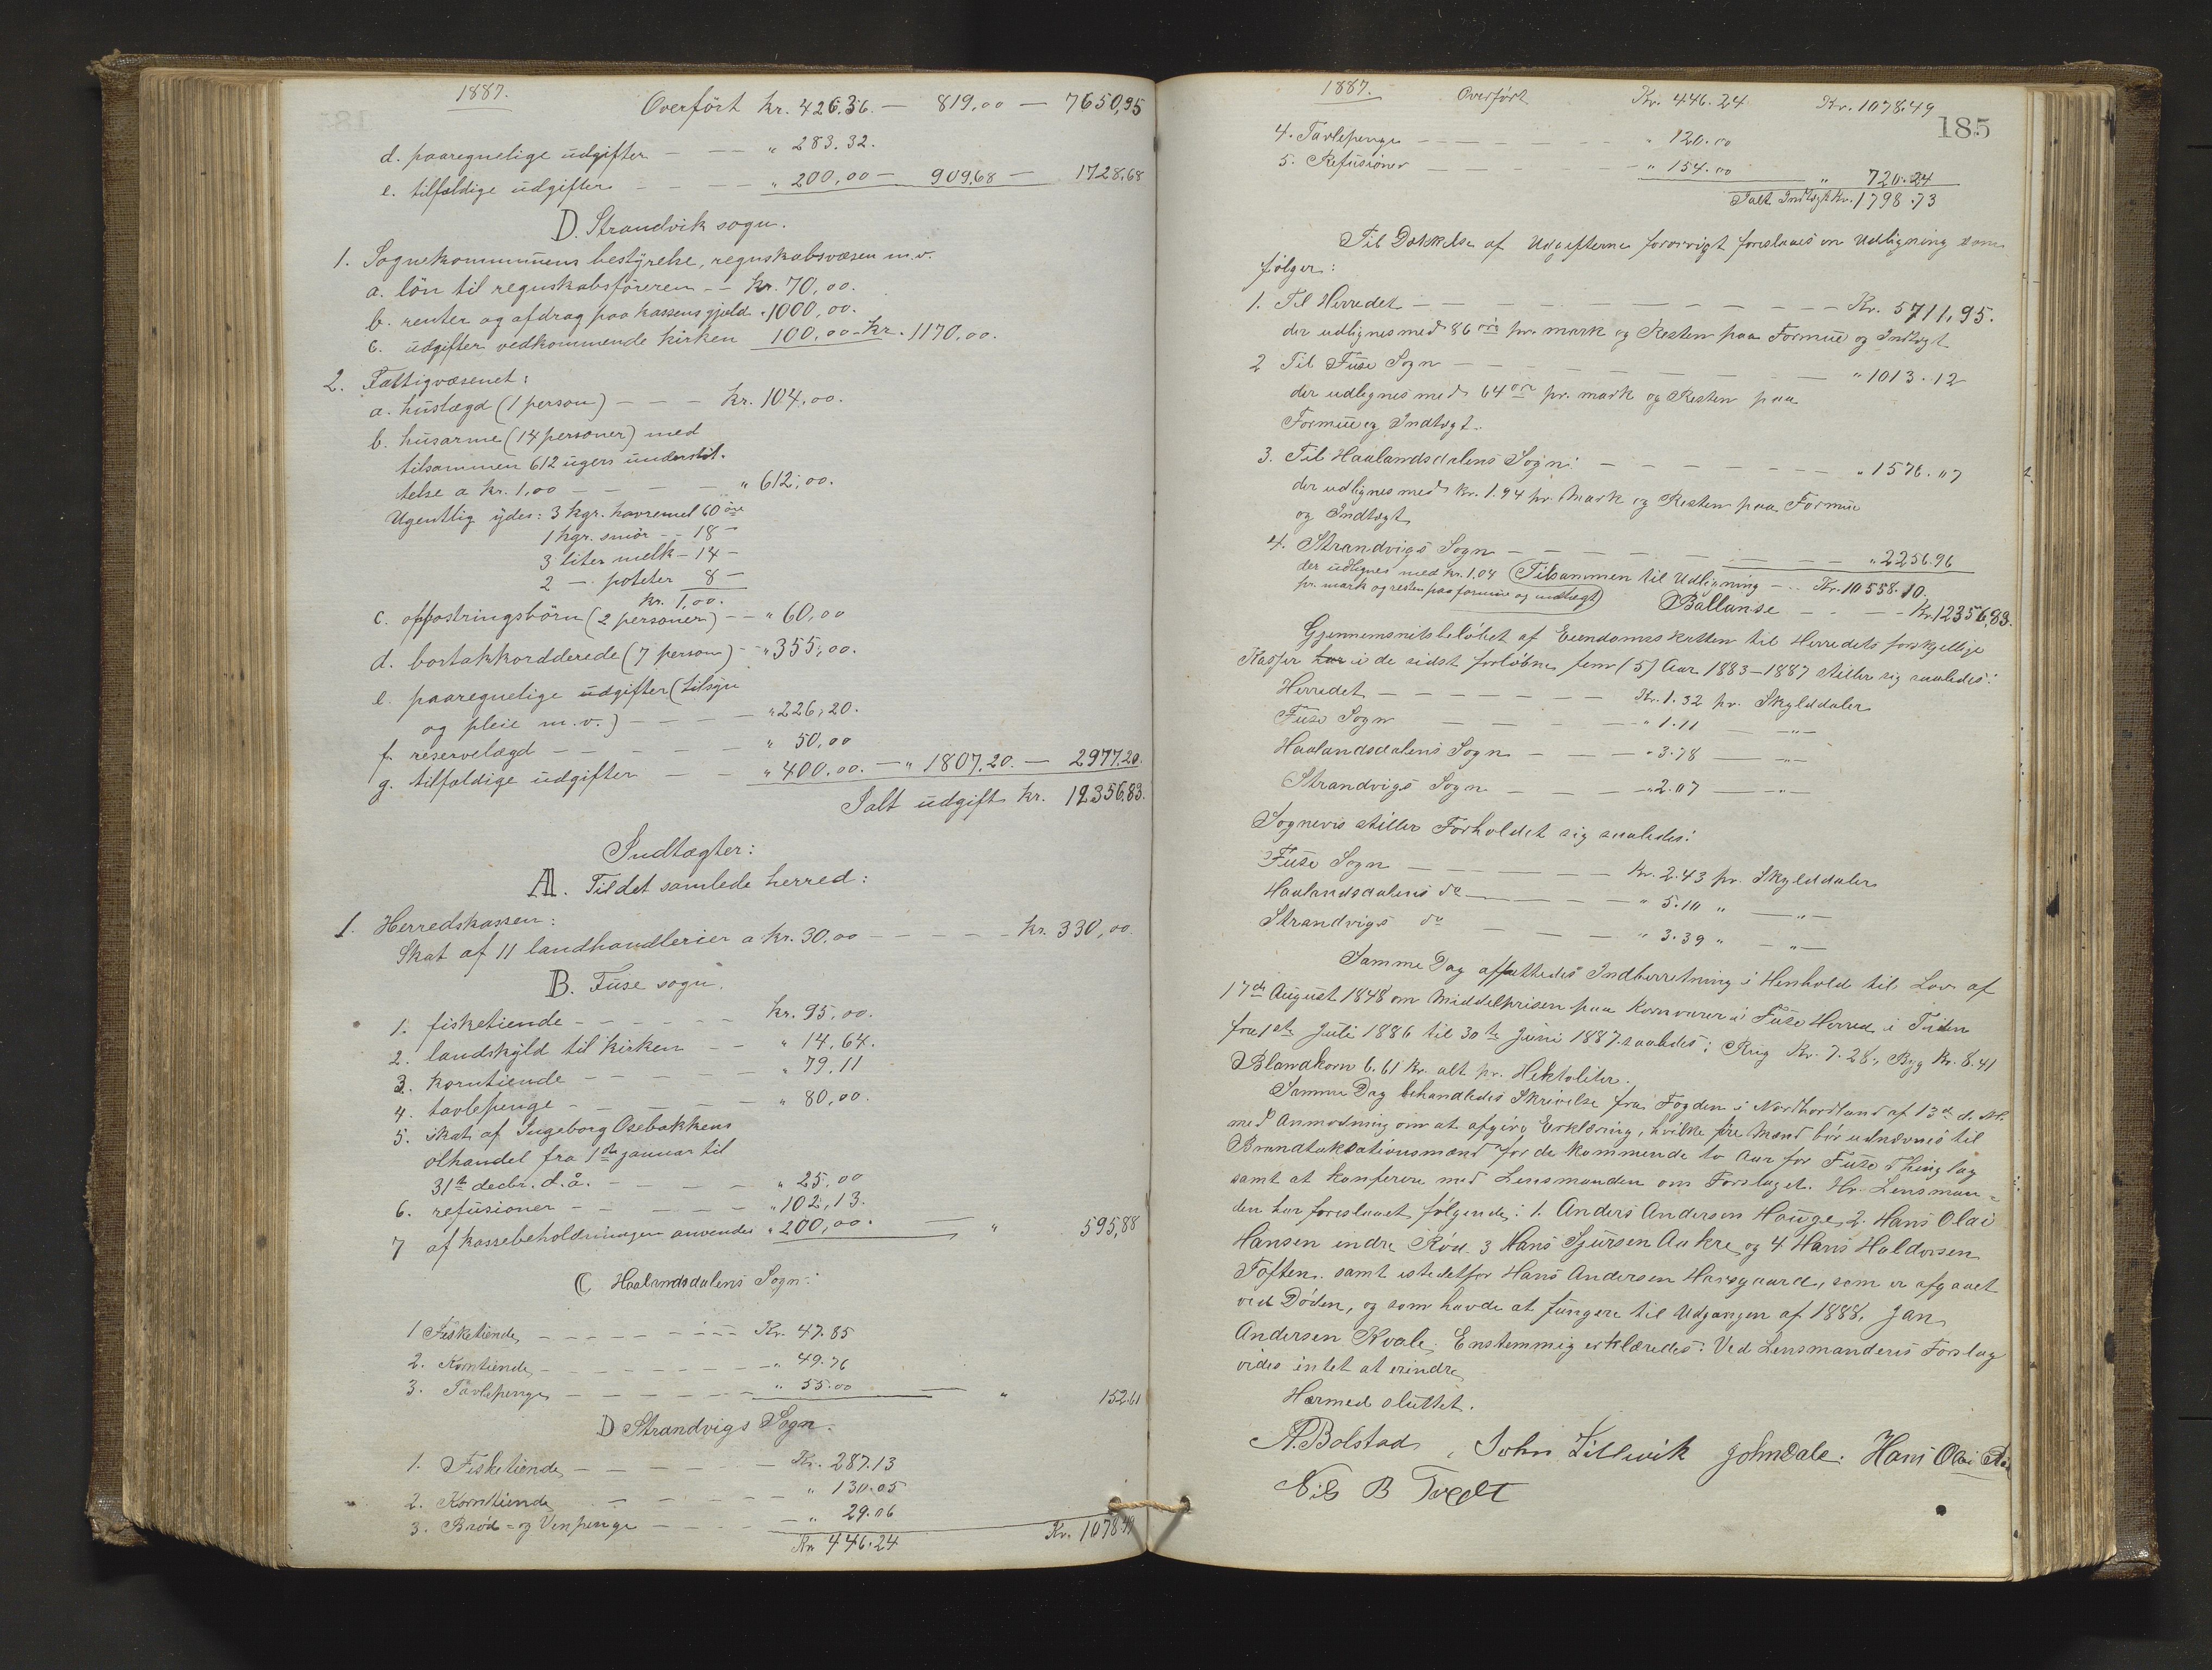 1887.
Overført kr. 426.36. — 819,00 — 7650,95
d. paaregnelige udgifter — — — " 283.32.
e. tilfældige udgifter — — — " 200,00 — 909,68 — 1728,68
D. Strandvik sogn.
1. Sognekommunens bestyrelse, regnskabsvæsen m.v.
a. lön til regnskabsföreren — — kr. 70,00.
b. renter og afdrag paa kassens gjæld " 1000,00.
c. udgifter vedkommende kirken 100,00 — kr. 1170,00.
2. Fattigvæsenet:
a. huslægd (1 person) — — — kr. 104,00.
b. husarme (14 personer) med
tilsammen 612 ugers understöt-
telse a kr. 1,00 — — — — " 612,00.
Ugentlig ydes: 3 kgr. havremel 60 öre
1 kgr. smör — — 18 —
3 liter melk — 14 —
2 — poteter 8 —
kr. 1,00.
c. opfostringsbörn (2 personer) — — " 60,00
d. bortakkordderede (7 person) — " 355,00.
e. paaregnelige udgifter (tilsyn
og pleie m.v.) — — — — " 226,20.
f. reservelægd — — — — — " 50,00
g. tilfældige udgifter — — " 400,00. — " 1807,20. — 2977.20.
Ialt udgift kr. 12356,83.
Indtægter:
A. Til det samlede herred:
1. Herredskassen:
Skat af 11 landhandlerier a kr. 30,00 — — — — — kr. 330,00.
B. Fuse sogn.
1. fisketiende — — — — — kr. 95,00.
2. landskyld til kirken — — " 14,64.
3. korntiende — — — — — " 79,11
4. tavlepenge — — — — — " 80,00.
5. skat af Ingeborg Osebakkens
ölhandel fra 1ste januar til
31te decbr. d.å. — — — — " 25,00
6. refusioner — — — — — " 102,13.
7 af kassebeholdningen anvendes " 200,00. — " 595,88
C Haalandsdalens Sogn:
1 Fisketiende — — — — — — Kr. 47.85
2. Korntiende — — — — — — " 49.76
3. Tavlepenge — — — — — — " 55.00 — " 152.61
D Strandvigs Sogn.
1. Fisketiende — — — — — Kr. 287.13
2. Korntiende — — — — — " 130.05
3. Brød= og Vinpenge — — — " 29.06
Kr 446.24 Kr. 1078.49
1887. Overført Kr. 446.24 Kr. 1078.49
185
4. Tavlepenge — — — — — — " 120.00
5. Refusioner — — — — — " 154.00 " 720.24
Ialt Indtægt Kr. 1798.73
Til Dækkelse af Udgifterne forøvrigt foreslaaes en Udligning som
følger:
1. Til Herredet — — — — — — — — — Kr. 5711,95.
der udlignes med 86 øre pr. mark og Resten paa Formue og Indtægt
2 Til Fuse Sogn — — — — — — — — " 1013.12
der udlignes med 64 øre pr. mark og Resten paa
Formue og Indtægt.
3. Til Haalandsdalens Sogn: — — — — — — " 1576.07
der udlignes med Kr. 1.94 pr. Mark og Resten paa Formue
og Indtægt
4. Strandvigs Sogn — — — — — — — — " 2256.96
der udlignes med kr. 1,04 (Tilsammen til Udligning — — Kr. 10558.10.
pr. mark og resten paa formue og indtægt) Ballanse — — — Kr 12356,83.
Gjennemsnitsbeløbet af Eiendomsskatten til Herredets forskjellige
Kasser har i de sidst forløbne fem (5) Aar 1883—1887 stiller sig saaledes:
Herredet — — — — — — — Kr. 1.32 pr. Skylddaler
Fuse Sogn — — — — — " 1.11 — " —
Haalandsdalens Sogn — — — " 3.78 — " —
Strandvigs Sogn — — — — " 2.07 — " —
Sognevis stiller Forholdet sig saaledes:
Fuse Sogn — — — — — — Kr. 2.43 pr. Skylddaler
Haalandsdalens do — — — — — " 5.10 " — " —
Strandvigs do — — — — " 3.39 " — " —
Samme Dag affattedes Indberretning i Henhold til Lov af
17de August 1848 om Middelprisen paa Kornvarer i Fuse Herred i Tiden
fra 1ste Juli 1886 til 30te Juni 1887 saaledes: Rug Kr. 7.28., Byg Kr. 8.41
Blandkorn 6.61 Kr. alt pr. Hektoliter.
Samme Dag behandledes Skrivelse fra Fogden i Nordhordland af 13de d. M.
med Anmodning om at afgive Erklæring, hvilke fire Mænd bør udnævnes til
Brandtakstionsmænd for de kommende to Aar for Fuse Thinglag
samt at konferere med Lensmanden om Forslaget. Hr. Lensman=
den har foreslaaet følgende: 1. Anders Andersen Hauge, 2. Hans Olai
Hansen indre Röd 3 Hans Sjursen Aakre, og 4 Hans Haldorsen
Toften. samt istedetfor Hans Andersen Havsgaard, som er afgaaet
ved Döden, og som havde at fungere til Udgangen af 1888. Jan
Andersen Kvale. Enstemmig erklæredes: Ved Lensmandens Forslag
vides intet at erindre
Hermed sluttet.
A. Bolstad, John Lillevik John Dale. Hans Olai
Nils B Tvedt